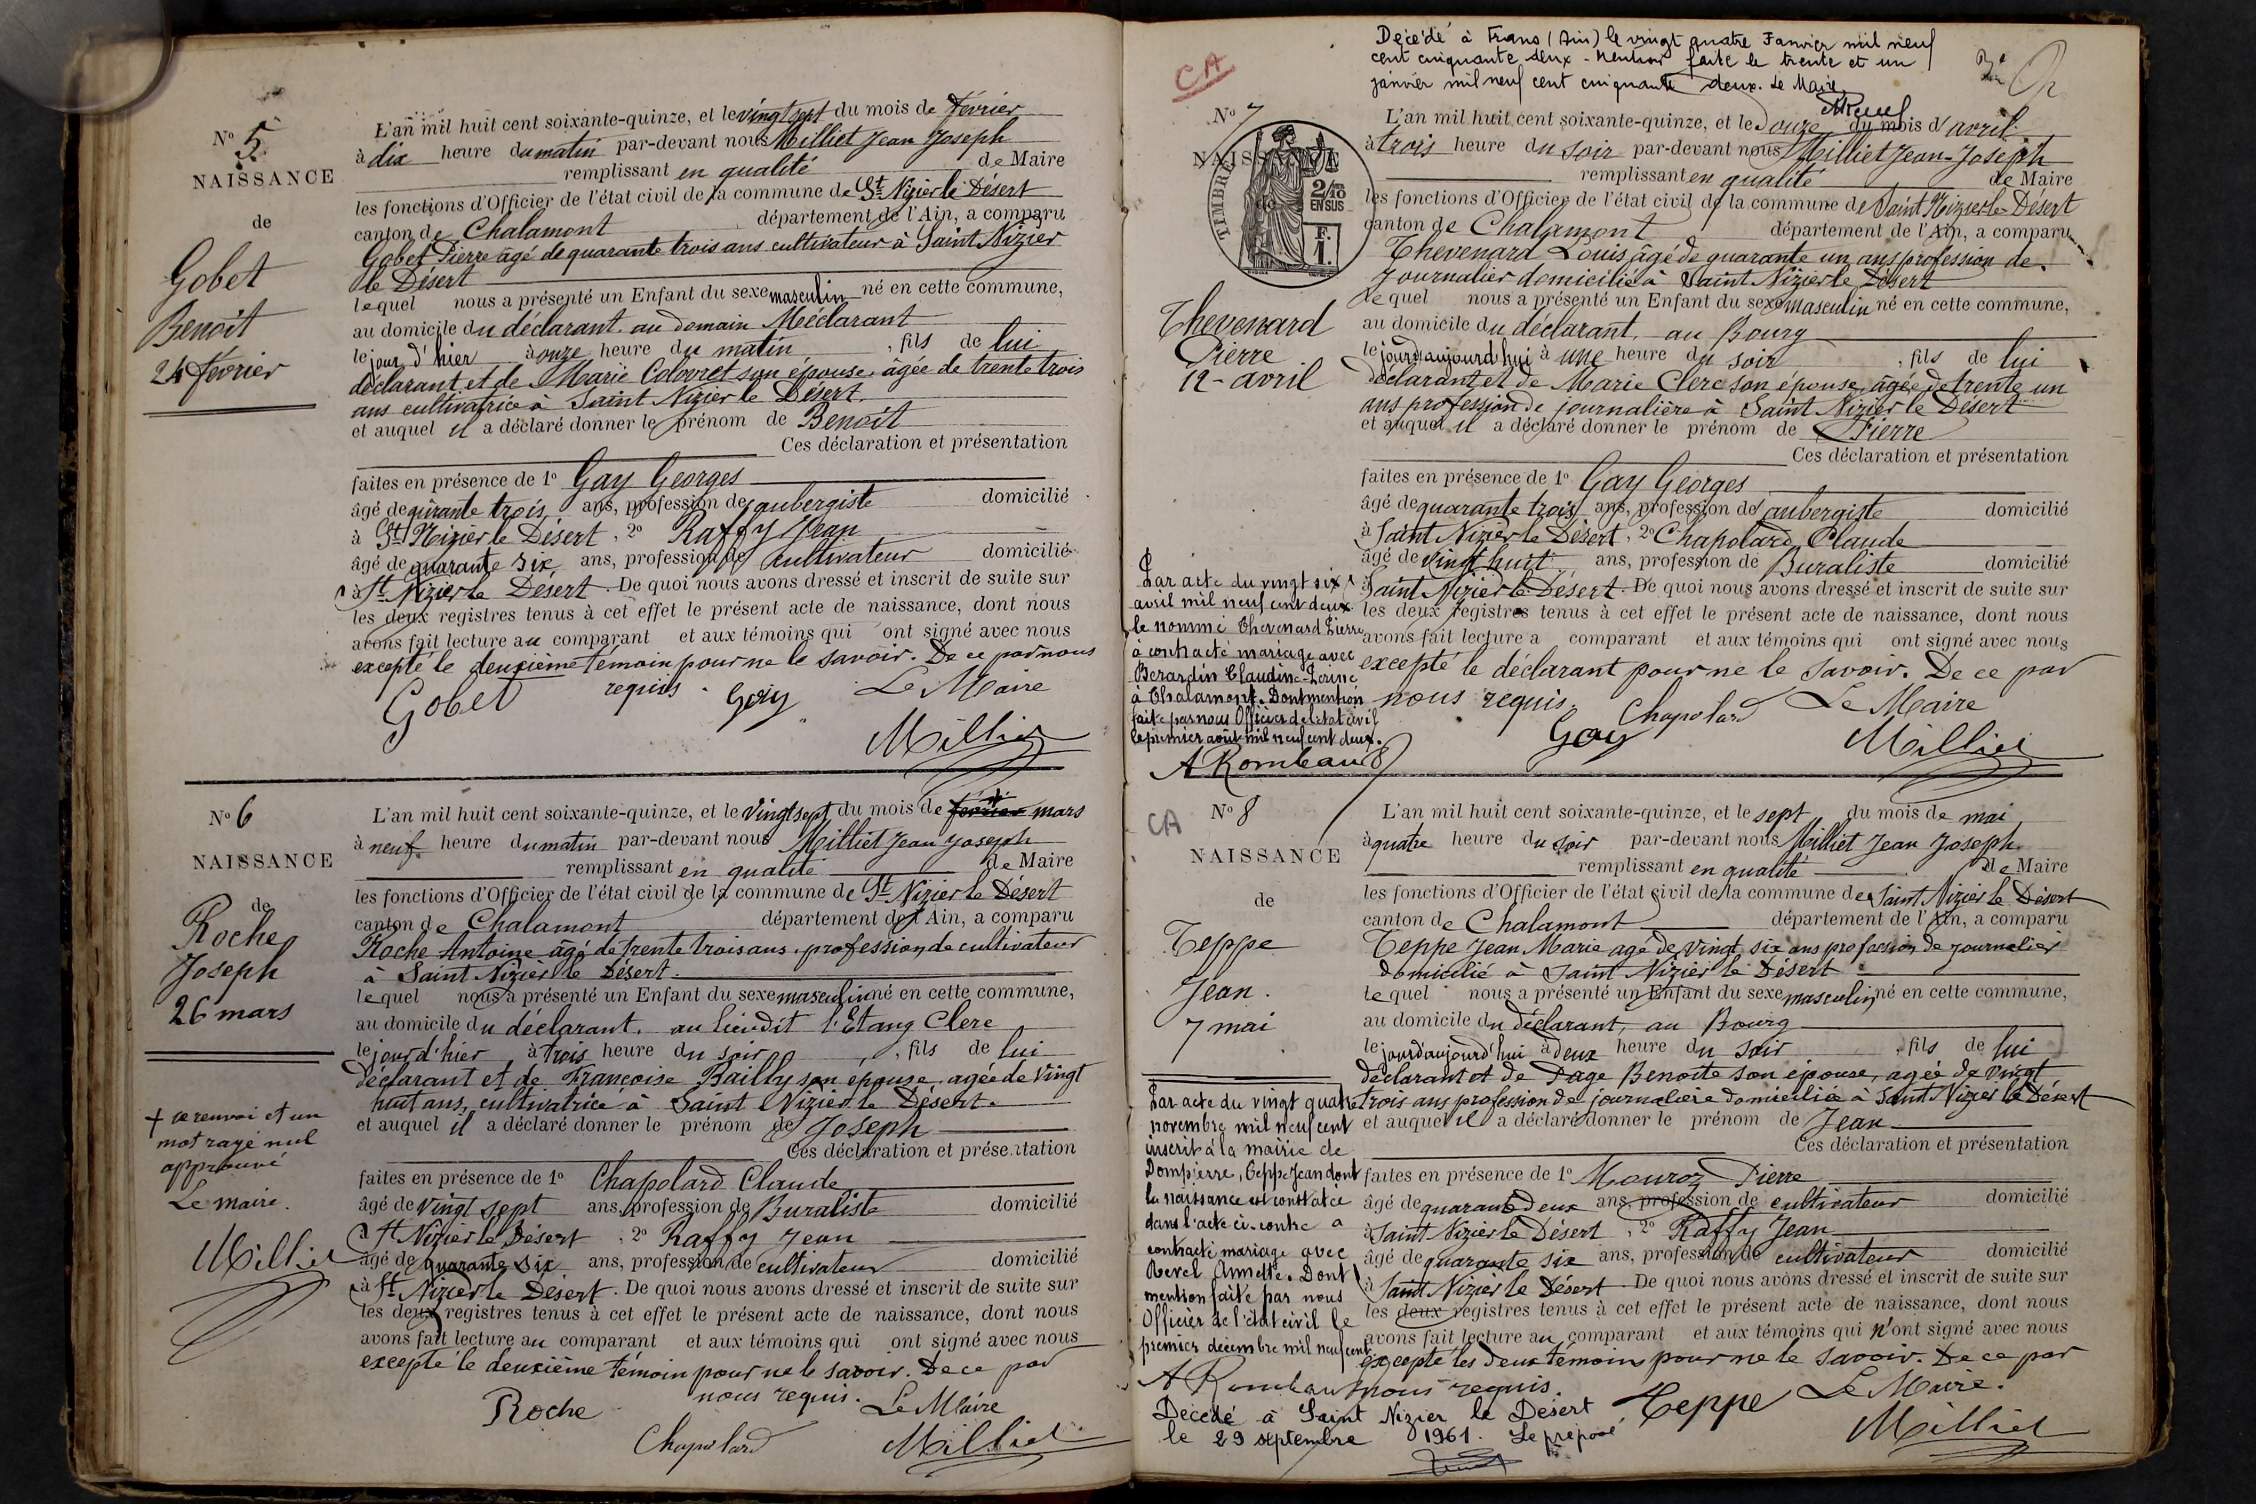 N° 5
NAISSANCE
de
Gobet
Benoît
24 février
L'an mil huit cent soixante-quinze, et le vingt sept du mois de février
à dix heure du matin par-devant nous Milliet Jean Joseph
remplissant en qualité de Maire
les fonctions d'Officier de l'état civil de la commune de St Nizier le Désert
canton de Chalamont département de l'Ain, a comparu
Gobet Pierre âgé de quarante trois ans cultivateur à Saint Nizier
le Désert
lequel nous a présenté un Enfant du sexe masculin né en cette commune,
au domicile du déclarant au
le jour d'hier à onze heure du matin, fils de lui
déclarant et de Marie son épouse, âgée de trente trois
ans cultivatrice à Saint Nizier le Désert.
et auquel il a déclaré donner le prénom de Benoît
Ces déclaration et présentation
faites en présence de 1° Gay Georges
âgé de qurante trois ans, profession de aubergiste domicilié
à St Nizier le Désert, 2° Raffy Jean
âgé de quarante six ans, profession de cultivateur domicilié
à St Nizier le Désert. De quoi nous avons dressé et inscrit de suite sur
les deux registres tenus à cet effet le présent acte de naissance, dont nous
avons fait lecture au comparant et aux témoins qui ont signé avec nous
excepté le deuxième témoin pour ne le savoir. De ce par nous
requis. Le Maire
Gobet Gay
Milliet
N° 6
NAISSANCE
de
Roche
Joseph
26 mars
+ ce renvoi et un
mot rayé nul
approuvé
Le maire.
Milliet
L'an mil huit cent soixante-quinze, et le vingt sept du mois de février mars
à neuf heure du matin par-devant nous Milliet Jean Joseph
remplissant en qualité de Maire
les fonctions d'Officier de l'état civil de la commune de St Nizier le Désert
canton de Chalamont département de l'Ain, a comparu
Roche Antoine âgé de trente trois ans, profession de cultivateur
à Saint Nizier le Désert.
lequel nous a présenté un Enfant du sexe masculin né en cette commune,
au domicile du déclarant, au lieudit l'Etang Clerc
le jour d'hier à trois heure du soir, fils de lui
déclarant et de Françoise Bailly son épouse, agée de vingt
huit ans, cultivatrice à Saint Nizier le Désert.
et auquel il a déclaré donner le prénom de Joseph
Ces déclaration et présentation
faites en présence de 1° Chapolard Claude
âgé de vingt sept ans, profession de Buraliste domicilié
à St Nizier le Désert, 2° Raffy Jean
âgé de quarante six ans, profession de cultivateur domicilié
à St Nizier le Désert. De quoi nous avons dressé et inscrit de suite sur
les deux registres tenus à cet effet le présent acte de naissance, dont nous
avons fait lecture au comparant et aux témoins qui ont signé avec nous
excepté le deuxième témoin pour ne le savoir. De ce par
nous requis. Le Maire
Roche
Chapolard Milliet
CA
Décédé à Trans (Ain) le vingt quatre Janvier mil neuf
cent cinquante deux - Mention faite le trente et un
janvier mil neuf cent cinquante deux. Le Maire
N° 7
NAISSANCE
de
TIMBRE
2/10
EN SUS
F.
1.
Thevenard
Pierre
12 - avril
L'an mil huit cent soixante-quinze, et le Douze du mois d'avril
à trois heure du soir par-devant nous Milliet Jean-Joseph
remplissant en qualité de Maire
les fonctions d'Officier de l'état civil de la commune de Saint Nizier le Désert
canton de Chalamont département de l'Ain, a comparu
Thevenard Louis, âgé de quarante un ans profession de
Journalier domicilié à Saint Nizier le Désert
lequel nous a présenté un Enfant du sexe masculin né en cette commune,
au domicile du déclarant, au Bourg
le jourd'aujourd'hui à une heure du soir, fils de lui
déclarant et de Marie Clerc son épouse, âgée de trente un
ans profession de journalière à Saint Nizier le Désert
et auquel il a déclaré donner le prénom de Pierre
Ces déclaration et présentation
faites en présence de 1° Gay Georges
âgé de quarante trois ans, profession d'aubergiste domicilié
à Saint Nizier le Désert, 2° Chapolard Claude
âgé de vingt huit ans, profession de Buraliste domicilié
à Saint Nizier le Désert. De quoi nous avons dressé et inscrit de suite sur
les deux registres tenus à cet effet le présent acte de naissance, dont nous
avons fait lecture a comparant et aux témoins qui ont signé avec nous
excepté le déclarant pour ne le savoir. De ce par
nous requis. Chapolard Le Maire
Gay Milliet
Par acte du vingt six
avril mil neuf cent deux
le nommé Thevenard Pierre
a contracté mariage avec
Berardin Claudine-
à Chalamont. Dont mention
faite par nous Officier de l'état civil
le premier août mil neuf cent deux.
A Rombaud
CA
N° 8
NAISSANCE
de
Teppe
Jean.
7 mai
L'an mil huit cent soixante-quinze, et le sept du mois de mai
à quatre heure du soir par-devant nous Milliet Jean Joseph
remplissant en qualité de Maire
les fonctions d'Officier de l'état civil de la commune de Saint Nizier le Désert
canton de Chalamont département de l'Ain, a comparu
Teppe Jean Marie agé de vingt six ans profession de journalier
domicilié à Saint Nizier le Désert
lequel nous a présenté un Enfant du sexe masculin né en cette commune,
au domicile du déclarant, au Bourg
le jourd'aujourd'hui à deux heure du soir, fils de lui
déclarant et de Page Benoîte son épouse, agée de vingt
trois ans profession de journalière domiciliée à Saint Nizier le Désert
et auquel il a déclaré donner le prénom de Jean
Ces déclaration et présentation
faites en présence de 1° Mouroz Pierre
âgé de quarante deux ans, profession de cultivateur domicilié
à Saint Nizier le Désert, 2° Raffy Jean
âgé de quarante six ans, profession de cultivateur domicilié
à Saint Nizier le Désert. De quoi nous avons dressé et inscrit de suite sur
les deux registres tenus à cet effet le présent acte de naissance, dont nous
avons fait lecture au comparant et aux témoins qui n'ont signé avec nous
excepté les deux témoins pour ne le savoir. De ce par
nous requis. Teppe Le Maire.
Milliet
Par acte du vingt quatre
novembre mil neuf cent
inscrit à la mairie de
Dompierre, Teppe Jean dont
la naissance est constatée
dans l'acte ci-contre a
contracté mariage avec
Revel Annette. Dont
mention faite par nous
Officier de l'état civil le
premier décembre mil neuf cent
A Rombaud
Décédé à Saint Nizier le Désert
le 29 septembre 1961. Le préposé